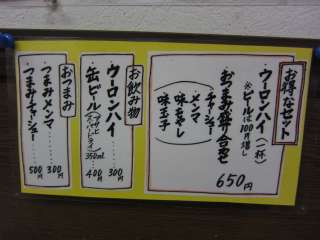 お得なセット
ウーロンハイ(一杯)
※ビールは100円増し
おつまみ盛り合わせ
チャーシュー
メンマ
味もやし
味玉子
650円
お飲み物
ウーロンハイ 300円
缶ビール 350ml 400円
おつまみ
つまみメンマ 300円
つまみチャーシュー 500円